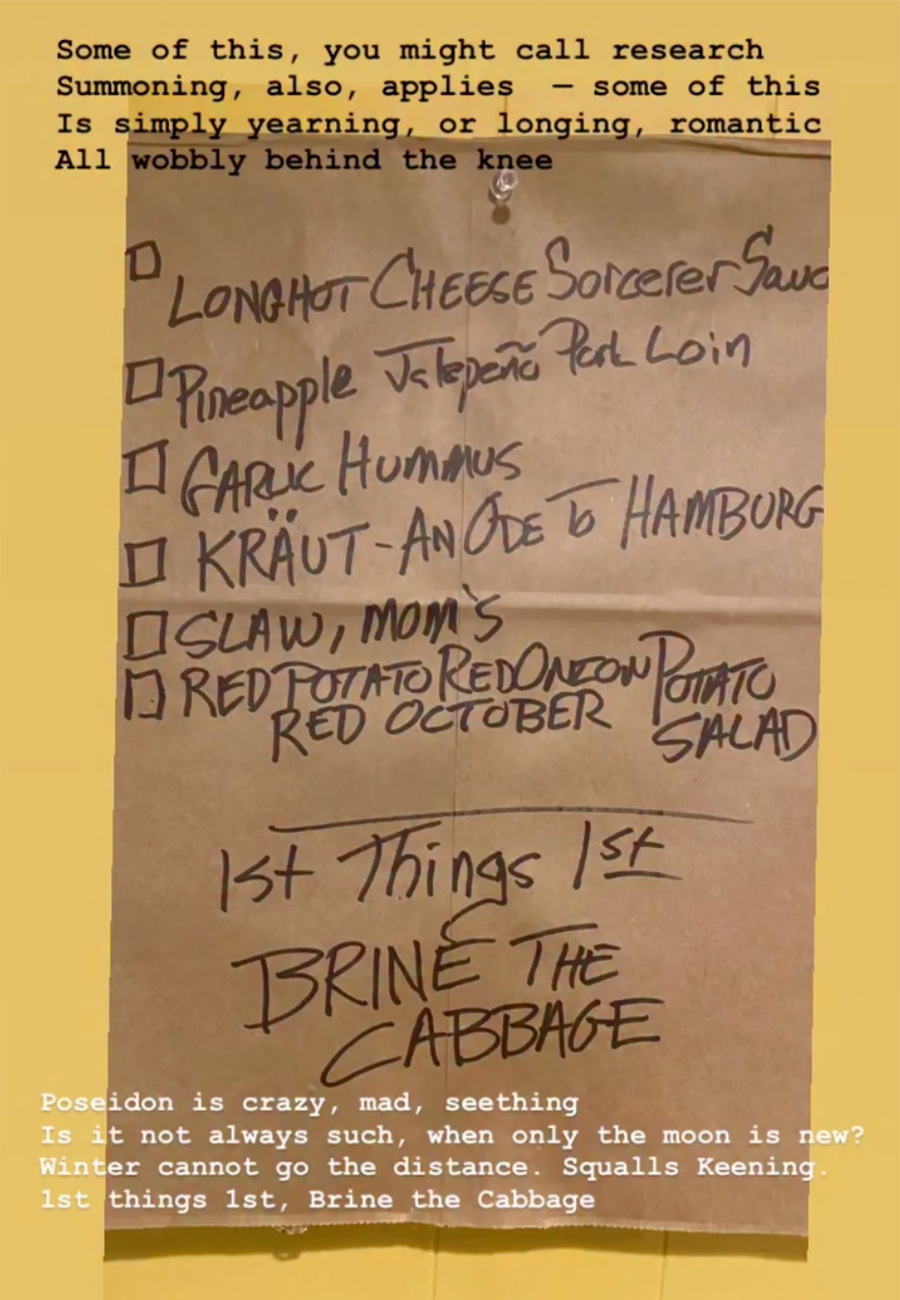 Some of this, you might call research
Summoning, also, applies — some of this
Is simply yearning, or longing, romantic
All wobbly behind the knee
LONGHOT CHEESE Sorcerer Sauc
Pineapple Jalepeño Pork Loin
GARLIC HUMMUS
KRÄUT - AN ODE TO HAMBURG
SLAW, MOM'S
RED POTATO RED ONION POTATO
RED OCTOBER SALAD
1st Things 1st
BRINE THE
CABBAGE
Poseidon is crazy, mad, seething
Is it not always such, when only the moon is new?
Winter cannot go the distance. Squalls Keening.
1st things 1st, Brine the Cabbage